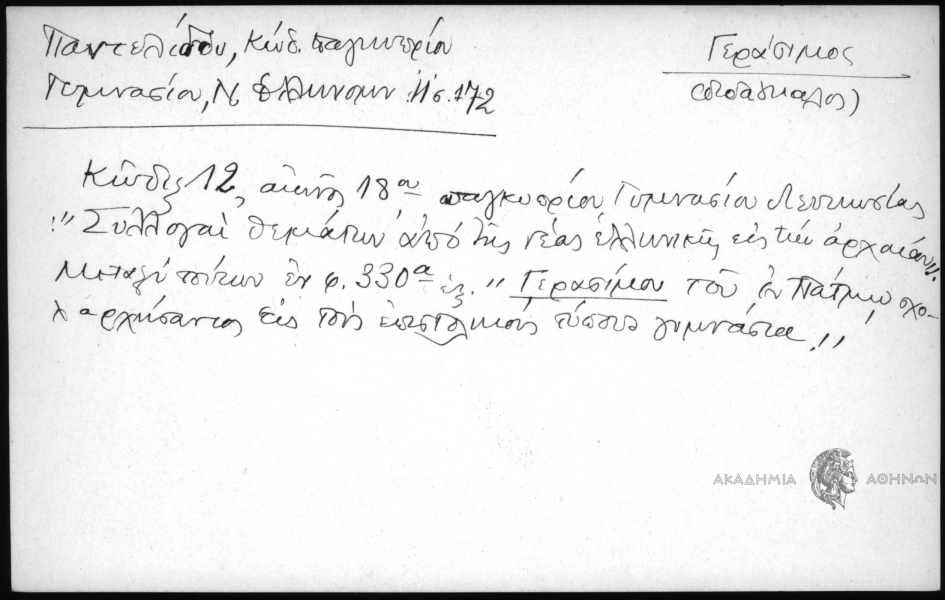 Παντελίδου, Κώδ. Παγκυπρίου
Γυμνασίου, Ν. Ἑλληνομν. Η σ. 172
Γεράσιμος
(διδάσκαλος)
Κῶδιξ 12, αἰῶνος 18ου παγκυπρίου Γυμνασίου Λευκωσίας
: "Συλλογαὶ θεμάτων ἀπὸ τῆς νέας ἑλληνικῆς εἰς τὴν ἀρχαίαν".
Μεταξὺ τούτων ἐν φ. 330α ἑξ. "Γερασίμου τοῦ ἐν Πάτμῳ σχο-
λαρχήσαντος εἰς τοὺς ἐπιστολικοὺς τύπους γυμνάσια"
ΑΚΑΔΗΜΙΑ ΑΘΗΝΩΝ